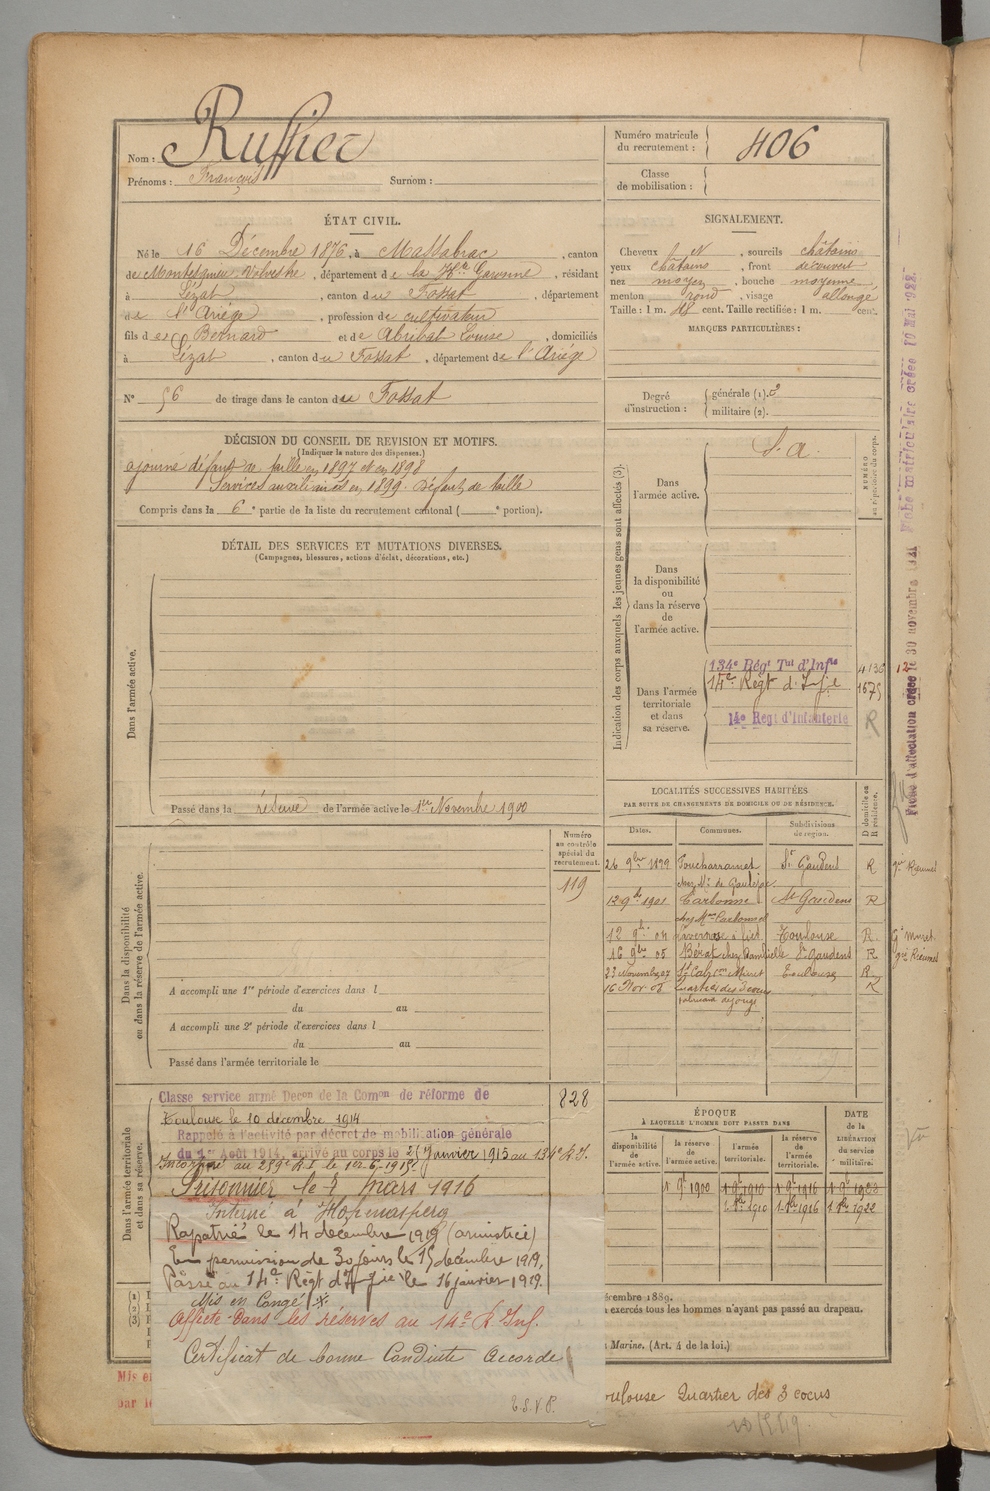 Nom : Ruffier
Prénoms : François Surnom :
Numéro matricule du recrutement : 406
Classe de mobilisation :
ÉTAT CIVIL.
Né le 16 Décembre 1876, à Massabrac, canton
de Montesquieu Volvestre, département de la Hte Garonne, résidant
à Lézat, canton du Fossat, département
de l'Ariége, profession de cultivateur
fils de Bernard et de Abribat Louise, domiciliés
à Lézat, canton du Fossat, département de l'Ariége
N° 56 de tirage dans le canton du Fossat
SIGNALEMENT.
Cheveux N, sourcils châtains
yeux châtains, front découvert
nez moyen, bouche moyenne
menton rond, visage allongé
Taille : 1 m. 48 cent. Taille rectifiée : 1 m. cent.
MARQUES PARTICULIÈRES :
Degré d'instruction : générale (1). 3
militaire (2).
DÉCISION DU CONSEIL DE REVISION ET MOTIFS.
(Indiquer la nature des dispenses.)
ajourné défaut de taille en 1897 et en 1898
Services auxiliaires en 1899. défaut de taille
Compris dans la 6e partie de la liste du recrutement cantonal ( e portion).
DÉTAIL DES SERVICES ET MUTATIONS DIVERSES.
(Campagnes, blessures, actions d'éclat, décorations, etc.)
Dans l'armée active.
Passé dans la réserve de l'armée active le 1er Novembre 1900
Indication des corps auxquels les jeunes gens sont affectés (3).
NUMÉRO au répertoire du corps.
Dans l'armée active.
S. a.
Dans la disponibilité ou dans la réserve de l'armée active.
Dans l'armée territoriale et dans sa réserve.
134e Régt Tal d'Infie
14e Régt d'Infie 1675
14e Régt d'Infanterie R
LOCALITÉS SUCCESSIVES HABITÉES
PAR SUITE DE CHANGEMENTS DE DOMICILE OU DE RÉSIDENCE.
Dates. Communes. Subdivisions de région. D domicile ou R résidence.
26 9bre 1899 Toucharramet St Gaudens R
chez Mr de
12 9b 1901 Carbonne St Gaudens R
chez Mme
12 9b 04 Lavernose Toulouse R
16 9bre 05 Bérat chez St Gaudens R
23 Novembre 07 Muret Toulouse R
16 Nov 08 R
Dans la disponibilité ou dans la réserve de l'armée active.
Numéro au contrôle spécial du recrutement.
119
A accompli une 1re période d'exercices dans l
du au
A accompli une 2e période d'exercices dans l
du au
Passé dans l'armée territoriale le
Dans l'armée territoriale et dans sa réserve.
828
Classé service armé Decon de la Comon de réforme de
Toulouse le 10 décembre 1914
Rappelé à l'activité par décret de mobilisation générale
du 1er Août 1914, arrivé au corps le 2 Janvier 1915 au 134e R.I.
Incorporé au 289e R.I. le 1er-6-1915.
Prisonnier le 7 mars 1916
Interné à Hohenasperg
Rapatrié le 14 décembre 1918 (armistice)
En permission de 30 jours le 15 décembre 1918,
Passé au 14e Régt d'Infie le 16 janvier 1919.
Mis en Congé
Affecté dans les réserves au 14e R. Inf.
Certificat de bonne Conduite Accordé
T.S.V.P.
ÉPOQUE
À LAQUELLE L'HOMME DOIT PASSER DANS
la disponibilité de l'armée active. la réserve de l'armée active. l'armée territoriale. la réserve de l'armée territoriale.
DATE DE LA LIBÉRATION DU SERVICE militaire.
1 9b 1900 1 9b 1910 1 9b 1916 1 9b 1922
écembre 1889.
exercés tous les hommes n'ayant pas passé au drapeau.
Marine. (Art. 4 de la loi.)
oulouse Quartier des 3 cocus
Fiche matriculaire créée 10 Mai 1922.
Fiche d'affectation créée le 30 novembre 1921